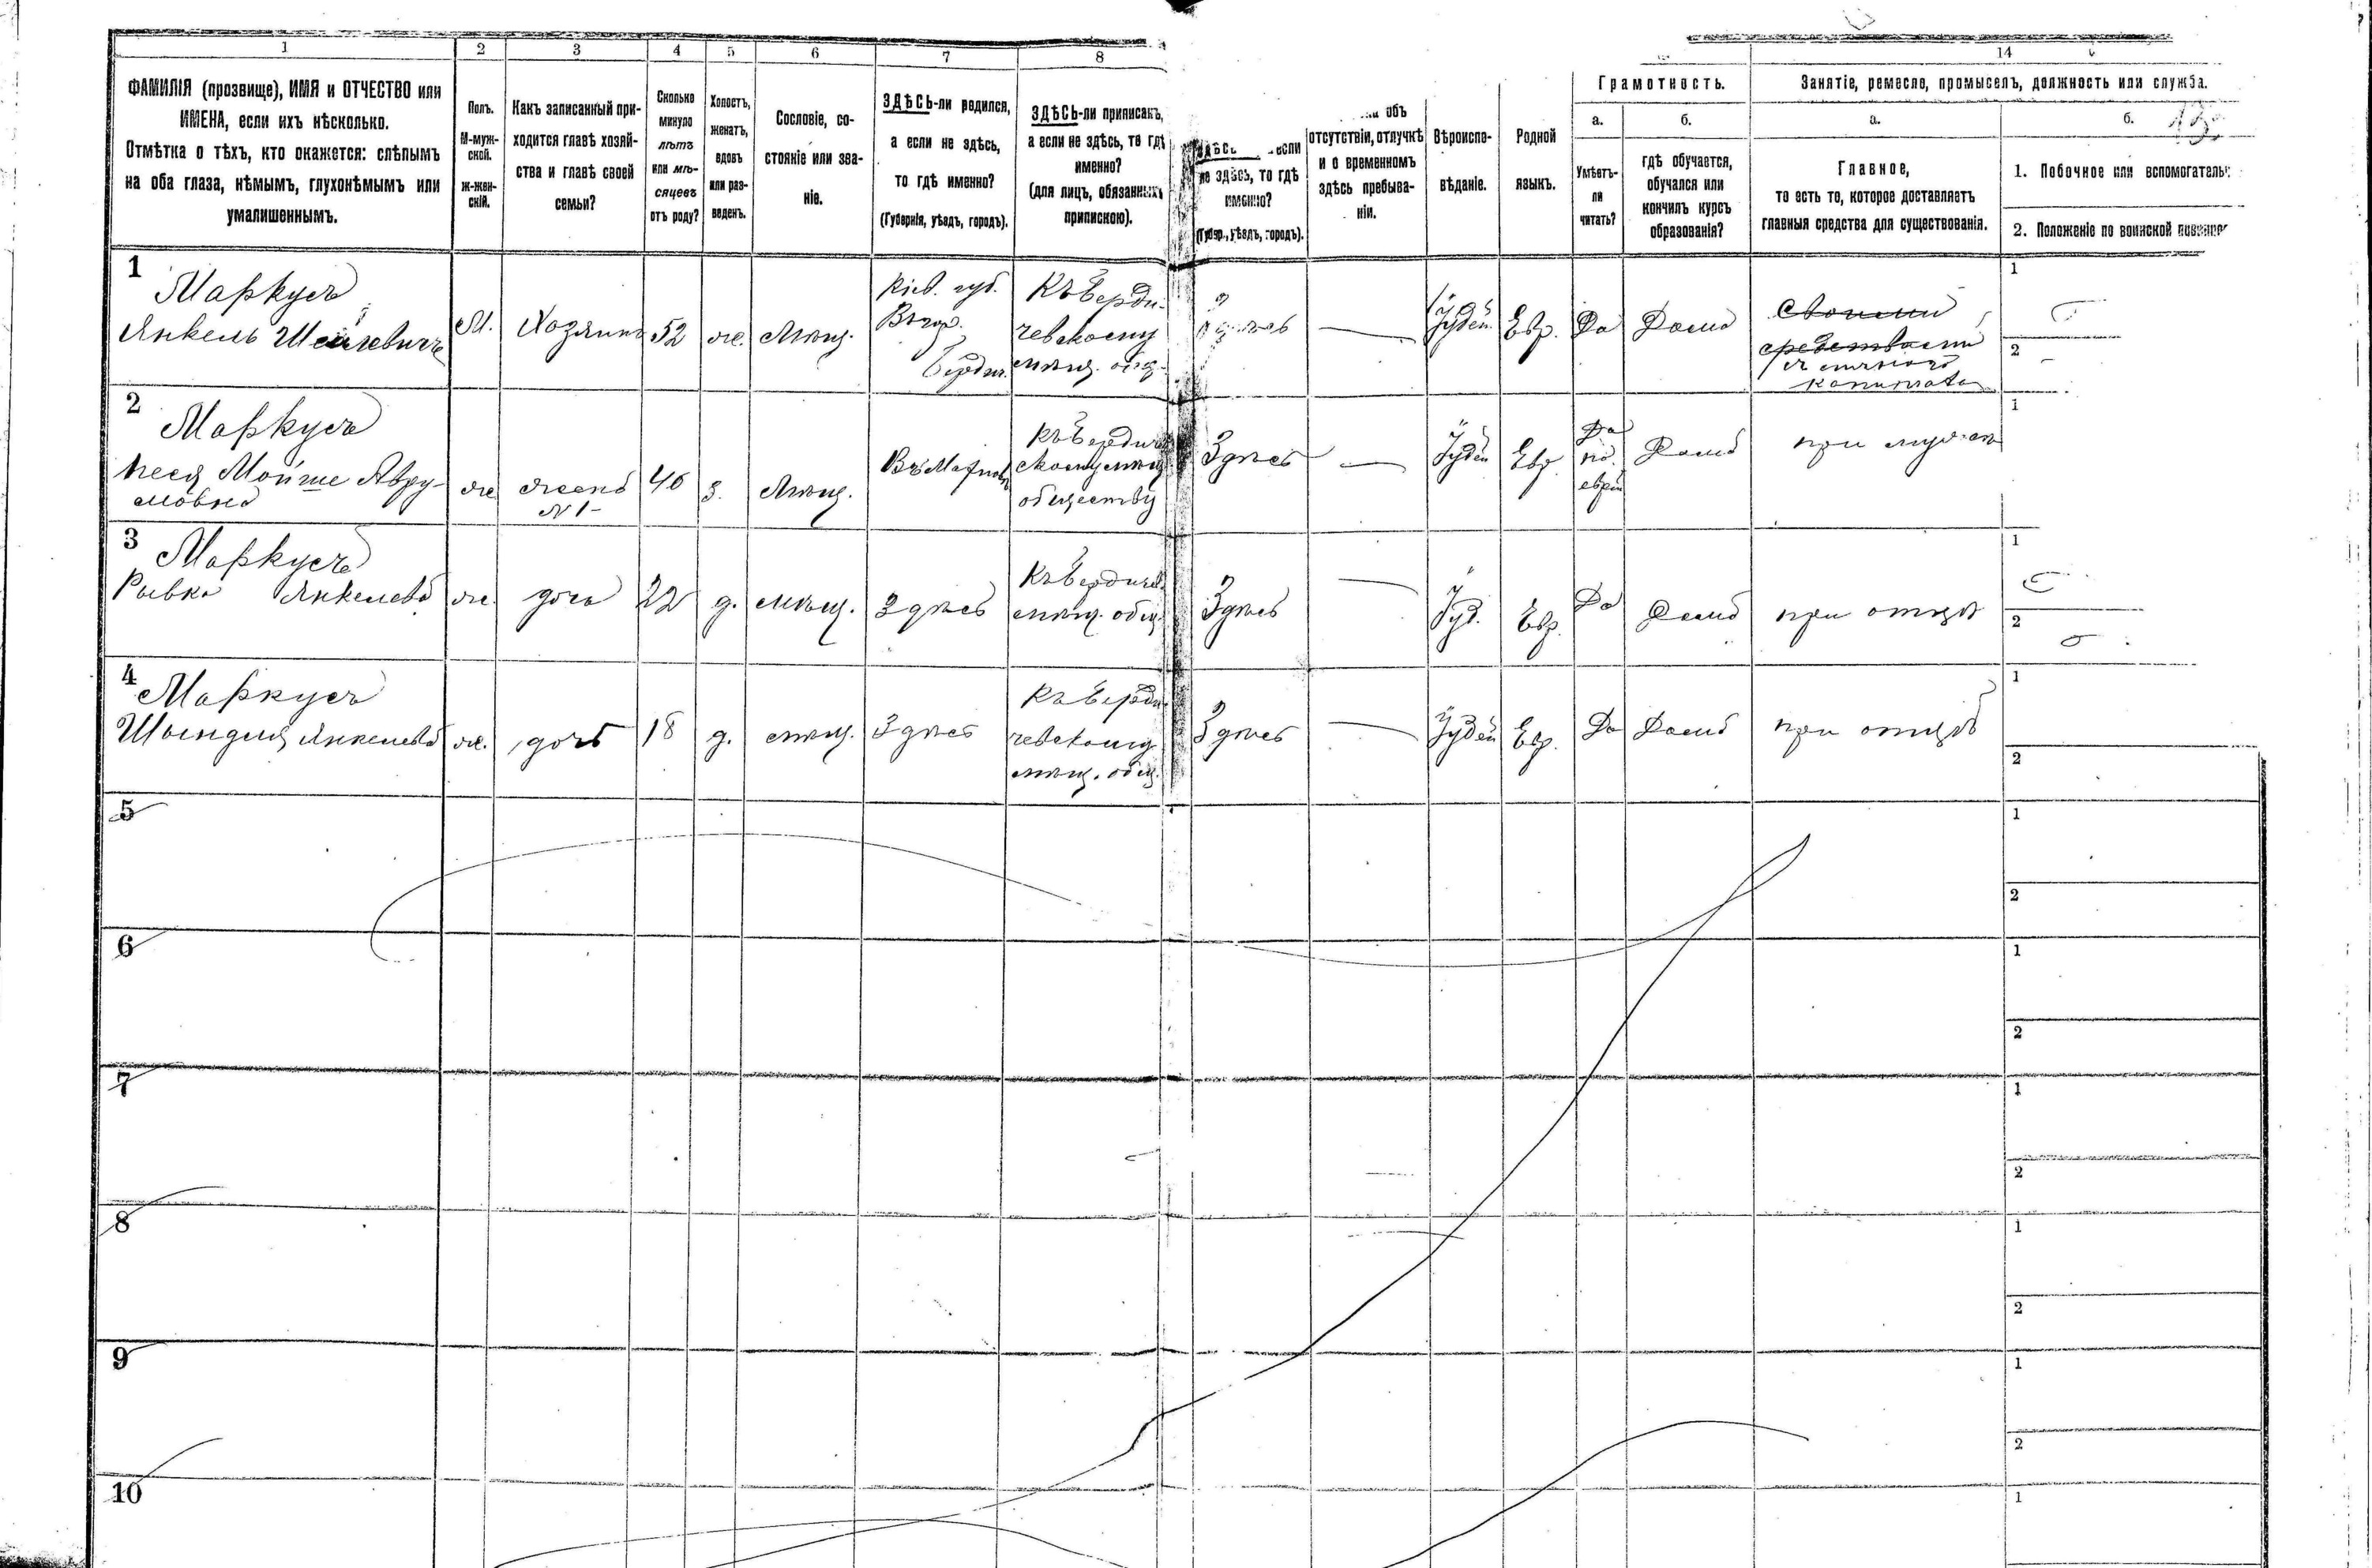 1 2 3 4 5 6 7 8 14
ФАМИЛІЯ (прозвище), ИМЯ и ОТЧЕСТВО или
ИМЕНА, если ихъ нѣсколько.
Отмѣтка о тѣхъ, кто окажется: слѣпымъ
на оба глаза, нѣмымъ, глухонѣмымъ или
умалишеннымъ.
Полъ.
М-муж-
ской.
ж-жен-
скій.
Какъ записанный при-
ходится главѣ хозяй-
ства и главѣ своей
семьи?
Сколько
минуло
лѣтъ
или мѣ-
сяцевъ
отъ роду?
Холостъ,
женатъ,
вдовъ
или раз-
веденъ.
Сословіе, со-
стояніе или зва-
ніе.
ЗДѢСЬ-ли родился,
а если не здѣсь,
то гдѣ именно?
(Губернія, уѣздъ, городъ).
ЗДѢСЬ-ли приписанъ,
а если не здѣсь, то гдѣ
именно?
(для лицъ, обязанныхъ
припискою).
если
не здѣсь, то гдѣ
именно?
(Губер., уѣздъ, городъ).
объ
отсутствіи, отлучкѣ
и о временномъ
здѣсь пребыва-
ніи.
Вѣроиспо-
вѣданіе.
Родной
языкъ.
Грамотность.
а.
Умѣетъ-
ли
читать?
б.
гдѣ обучается,
обучался или
кончилъ курсъ
образованія?
Занятіе, ремесло, промыселъ, должность или служба.
а.
Главное,
то есть то, которое доставляетъ
главныя средства для существованія.
б.
1. Побочное или
2. Положеніе по воинской
1
Маркусъ
Янкель
М. Хозяинъ 52 ж. Мѣщ.
Кіев. губ.
Къ Берди-
чевскому
мѣщ. общ.
Іудей Евр. Да Дома
своими
средствами
съ
капитала
1
2
2
Маркусъ
Песя Мойше Авру-
мовна
ж жена
№ 1
40 з. Мѣщ.
Къ Бердич
скому мѣщ
обществу
Здѣсь Іудей Евр
Да
по
еврей
Дома при
1
3
Маркусъ
Рывка Янкелева ж. дочь 22 д. мѣщ. Здѣсь
Къ Бердичев
мѣщ. общ.
Здѣсь Іуд. Евр. Да Дома при отцѣ
1
2
4
Маркусъ
Шындля Янкелева ж. дочь 18 д. мѣщ. Здѣсь
Къ Берди
чевскому
мѣщ. общ.
Здѣсь Іудей Евр. Да Дома при отцѣ
1
2
5 1
2
6 1
2
7 1
2
8 1
2
9 1
2
10 1